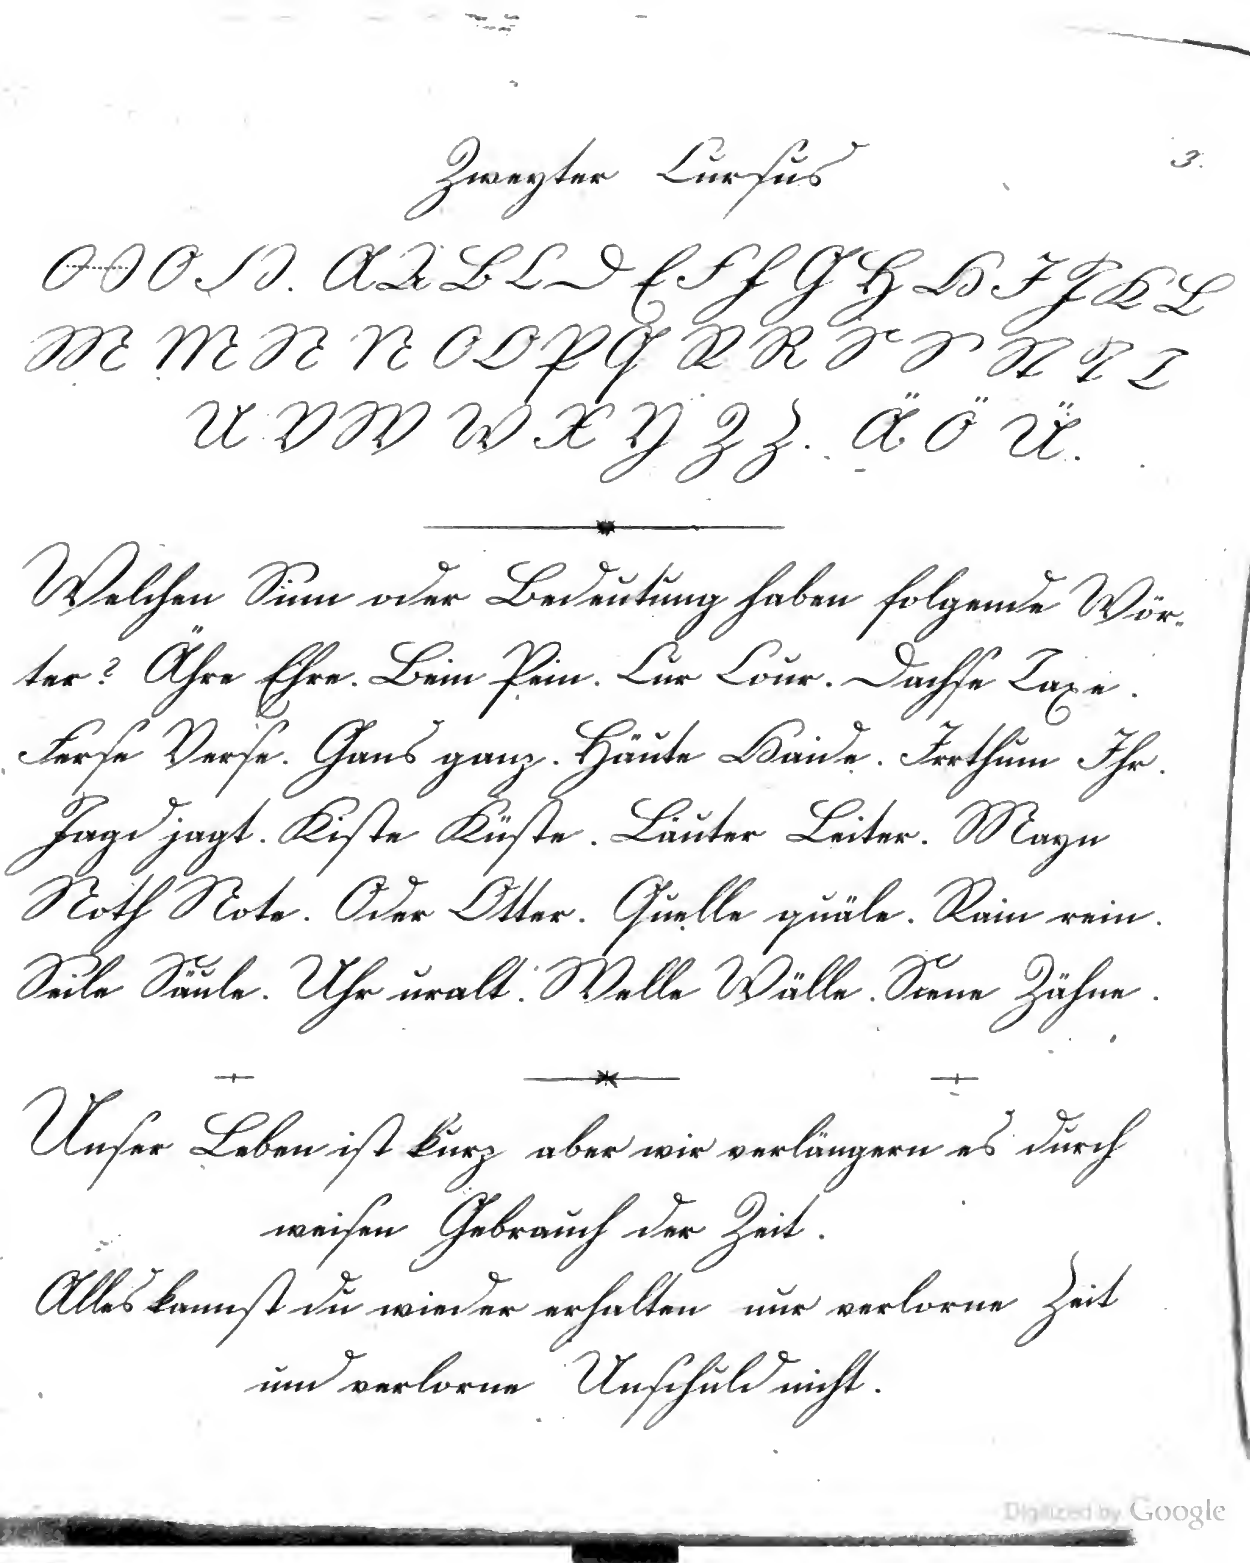 Zweyter Cursus
3.
O O O S S. A A B C D E F f G H H I J K L
M M N N O O P Q R R S S St T T
U V W W X Y Z Z. Ä Ö Ü.
Welchen Sinn oder Bedeutung haben folgende Wör-
ter? Ähre Ehre. Bein Pein. Cur Cour. Dachse Taxe.
Ferse Verse. Gans ganz. Häute Haide. Irrthum Ihr.
Jagd jagt. Kiste Küste. Läuter Leiter. Mayn
Noth Note. Oder Otter. Quelle quäle. Rain rein.
Seile Säule. Uhr uralt. Welle Wälle. Scene Zähne.
Unser Leben ist kurz aber wir verlängern es durch
weisen Gebrauch der Zeit.
Alles kannst du wieder erhalten nur verlorne Zeit
und verlorne Unschuld nicht.
Digitized by Google